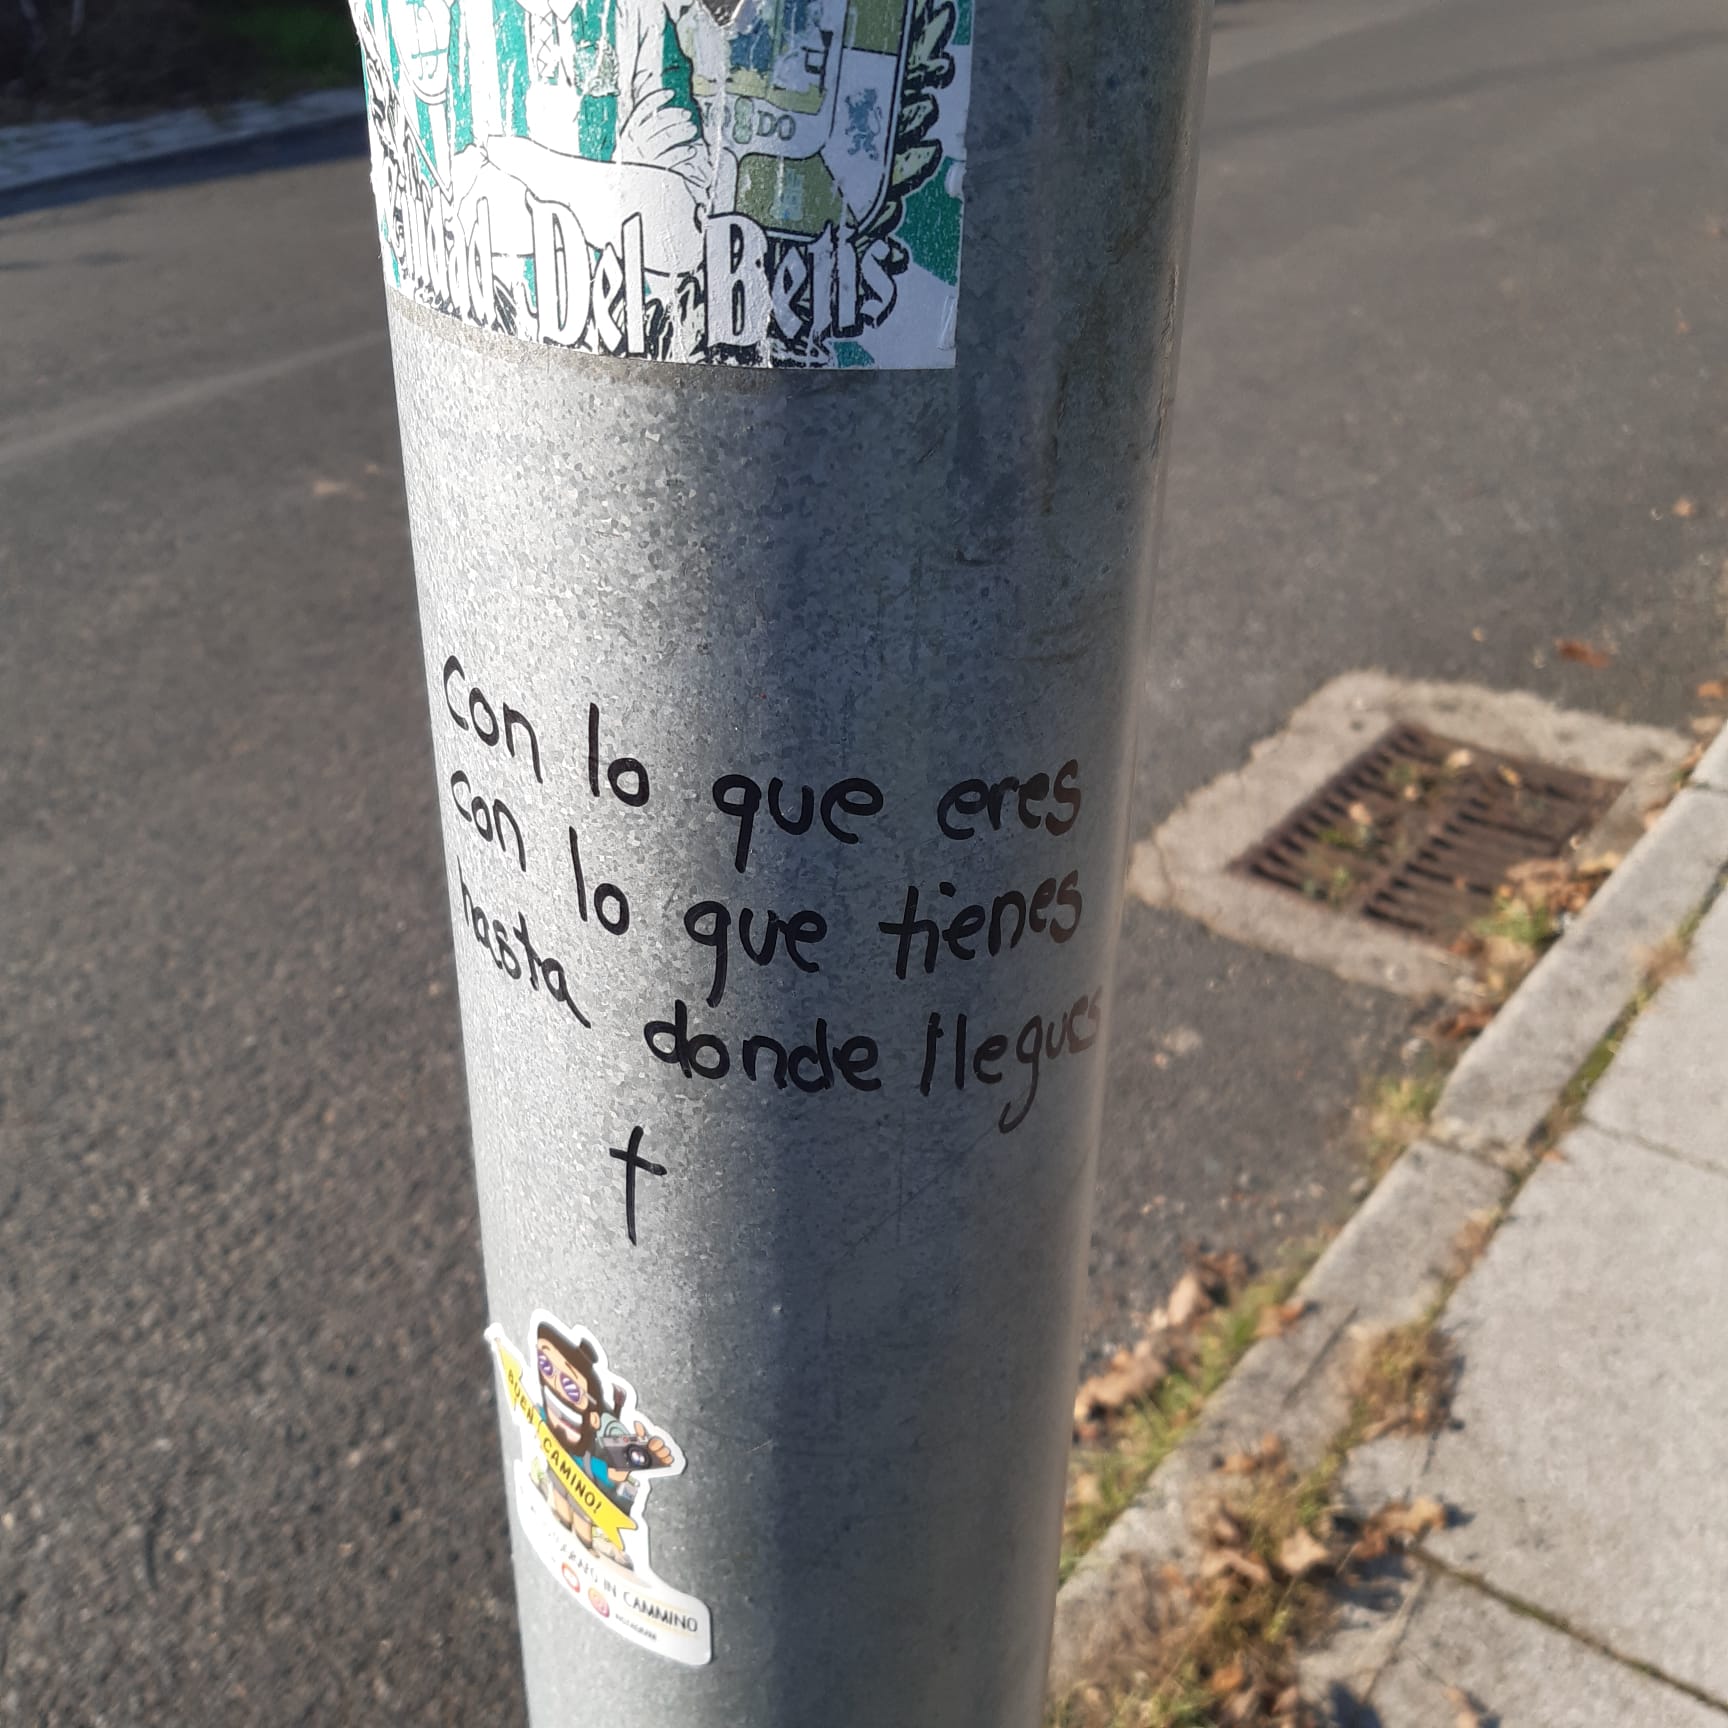 DO
Del Betis
Con lo que eres
con lo que tienes
hasta donde llegues
BUEN CAMINO!
IN CAMMINO